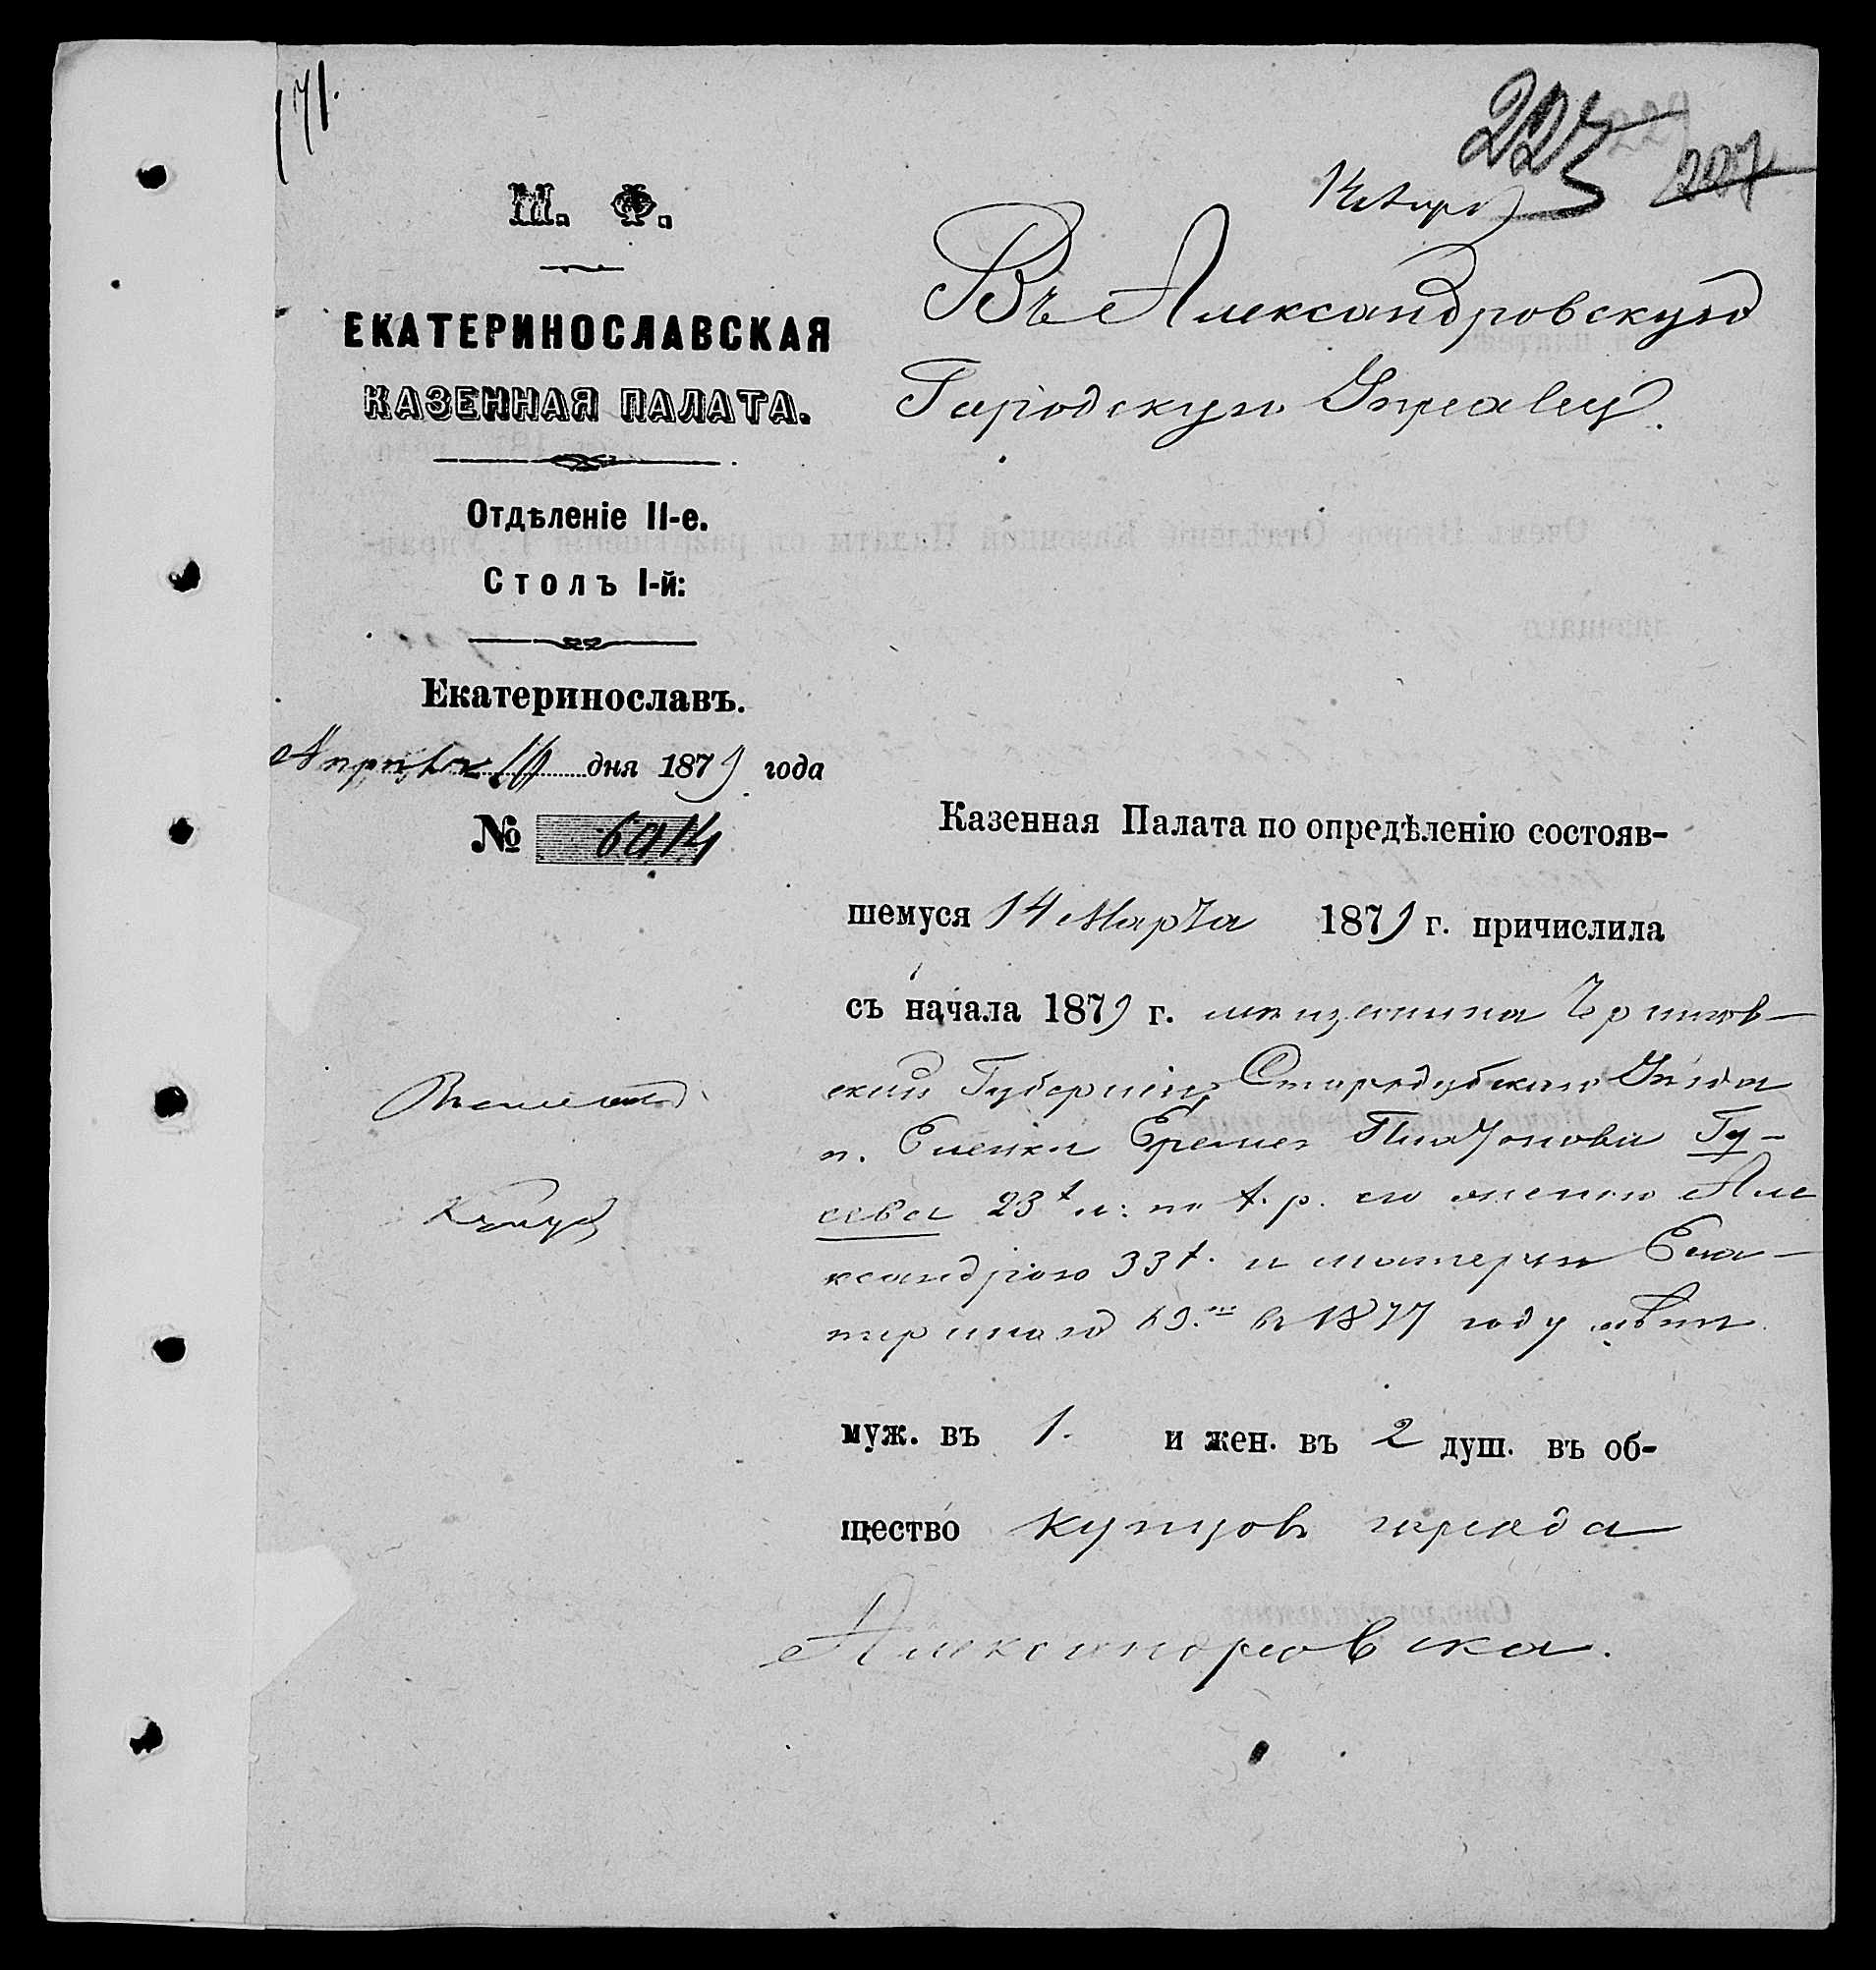 171.
225 229
207
М. Ф.
ЕКАТЕРИНОСЛАВСКАЯ
КАЗЕННАЯ ПАЛАТА.
Отдѣленіе II-е.
Столъ I-й:
Екатеринославъ.
Апрѣля дня 1879 года
№ 6014
Въ Александровскую
Городскую Управу.
Казенная Палата по опредѣленію состояв-
шемуся 14 Марта 1879 г. причислила
съ начала 1879 г. мѣщанина Чернигов-
ской Губерніи, Стародубскаго Уѣзда
п. Еленки Еремея Платонова Гу-
сева 23 л: по 1. р. съ женою Але
ксандрою 33 л. и матерью Ека-
териною 69. въ 1877 году
муж. въ 1. и жен. въ 2 душ. въ об-
щество купцовъ города
Александровска.